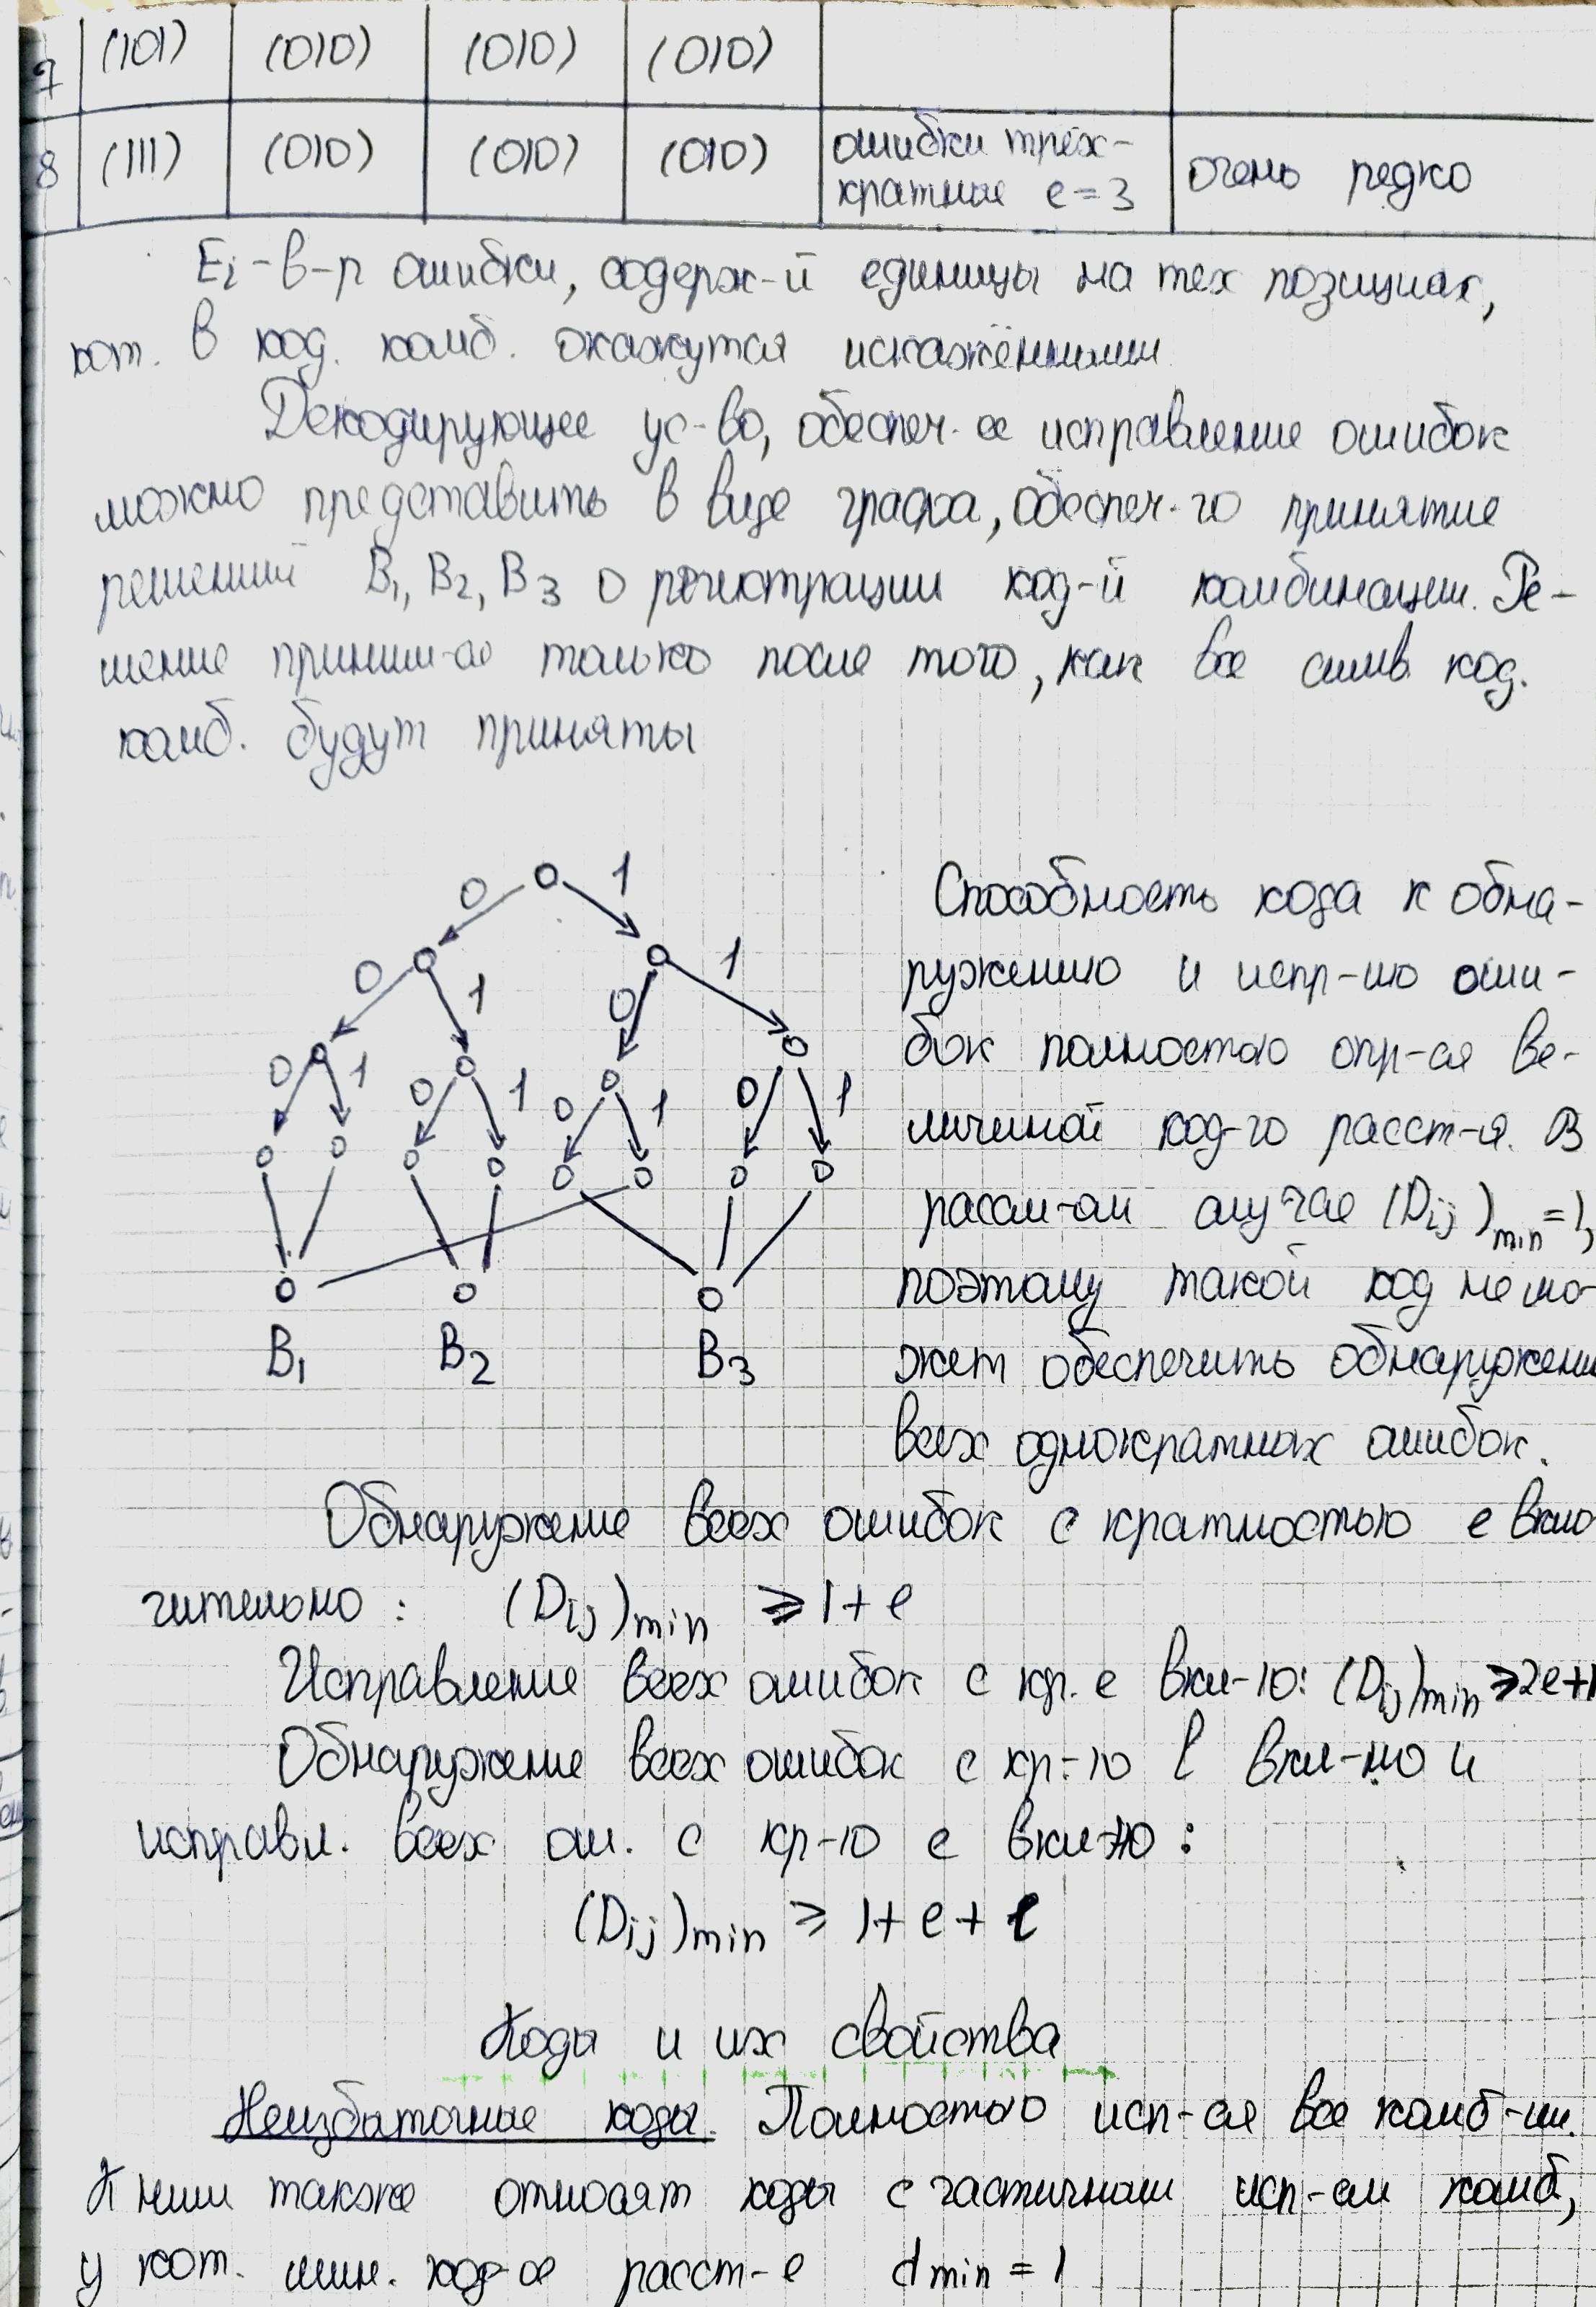 7 (101) (010) (010) (010)
8 (111) (010) (010) (010) ошибки трёх-
кратные e=3 очень редко
Ei - в-р ошибки, содерж-й единицы на тех позициях,
кот. в код. комб. окажутся искажёнными
Декодирующее ус-во, обеспеч-ее исправление ошибок
можно представить в виде графа, обеспеч-го принятие
решений B1, B2, B3 о регистрации код-й комбинации. Ре-
шение приним-ся только после того, как все симв. код.
комб. будут приняты
0 1
0 1 0 1
0 1 0 1 0 1 0 1
B1 B2 B3
Способность кода к обна-
ружению и испр-ию оши-
бок полностью опр-ся ве-
личиной код-го расст-я. В
рассм-ом случае (Dij)min=1,
поэтому такой код не мо-
жет обеспечить обнаружени
всех однократных ошибок.
Обнаружение всех ошибок с кратностью e вклю
чительно: (Dij)min ⩾ 1+e
Исправление всех ошибок с кр. e вкл-но: (Dij)min ⩾ 2e+1
Обнаружение всех ошибок с кр-ю l вкл-но и
исправл. всех ош. с кр-ю e вкл-но:
(Dij)min ⩾ 1+e+l
Коды и их свойства
Неизбыточные коды. Полностью исп-ся все комб-ии.
К ним также относят коды с частичным исп-ем комб,
у кот. мин. код-ое расст-е dmin = 1